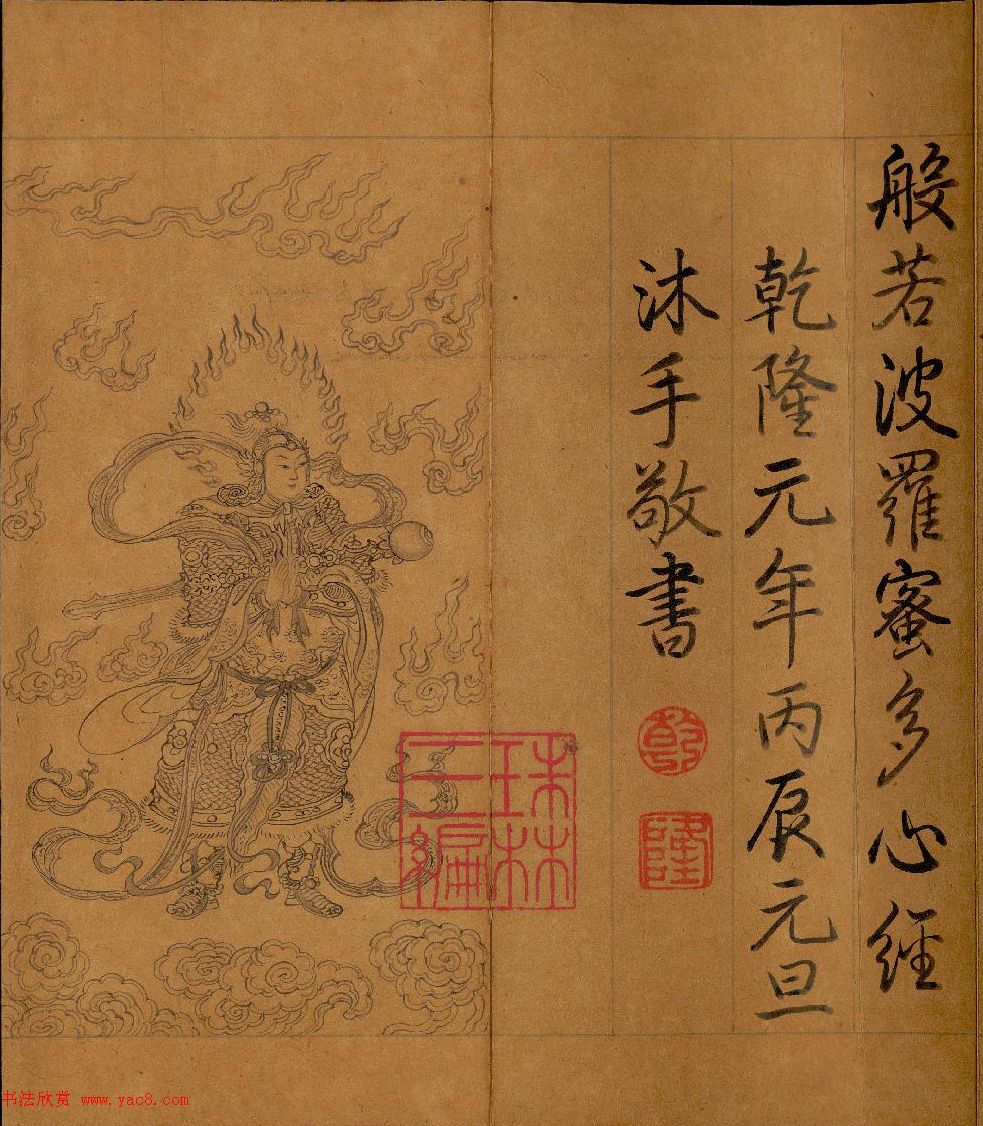 般若波羅蜜多心經
乾隆元年丙辰元旦
沐手敬書
乾
隆
珠林
三編
书法欣赏 www.yac8.com